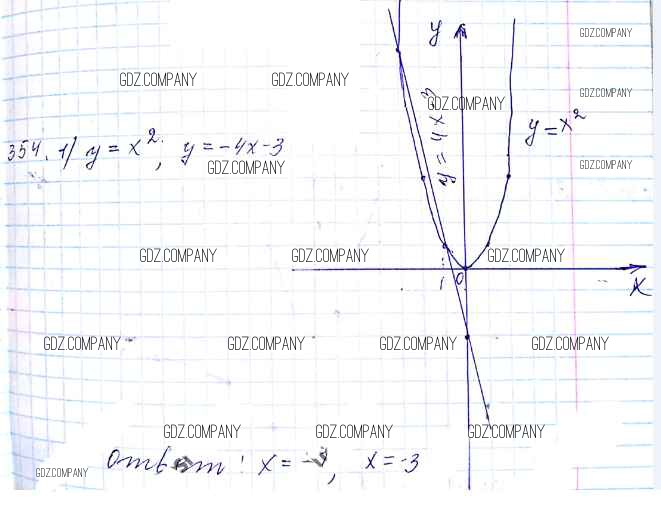 y
GDZ.COMPANY
GDZ.COMPANY GDZ.COMPANY
GDZ.COMPANY
GDZ.COMPANY
y = x²
354. 1) y = x², y = -4x-3
GDZ.COMPANY
GDZ.COMPANY
GDZ.COMPANY GDZ.COMPANY GDZ.COMPANY
0
x
GDZ.COMPANY GDZ.COMPANY GDZ.COMPANY GDZ.COMPANY
GDZ.COMPANY GDZ.COMPANY GDZ.COMPANY
Ответ: x = , x = -3
GDZ.COMPANY